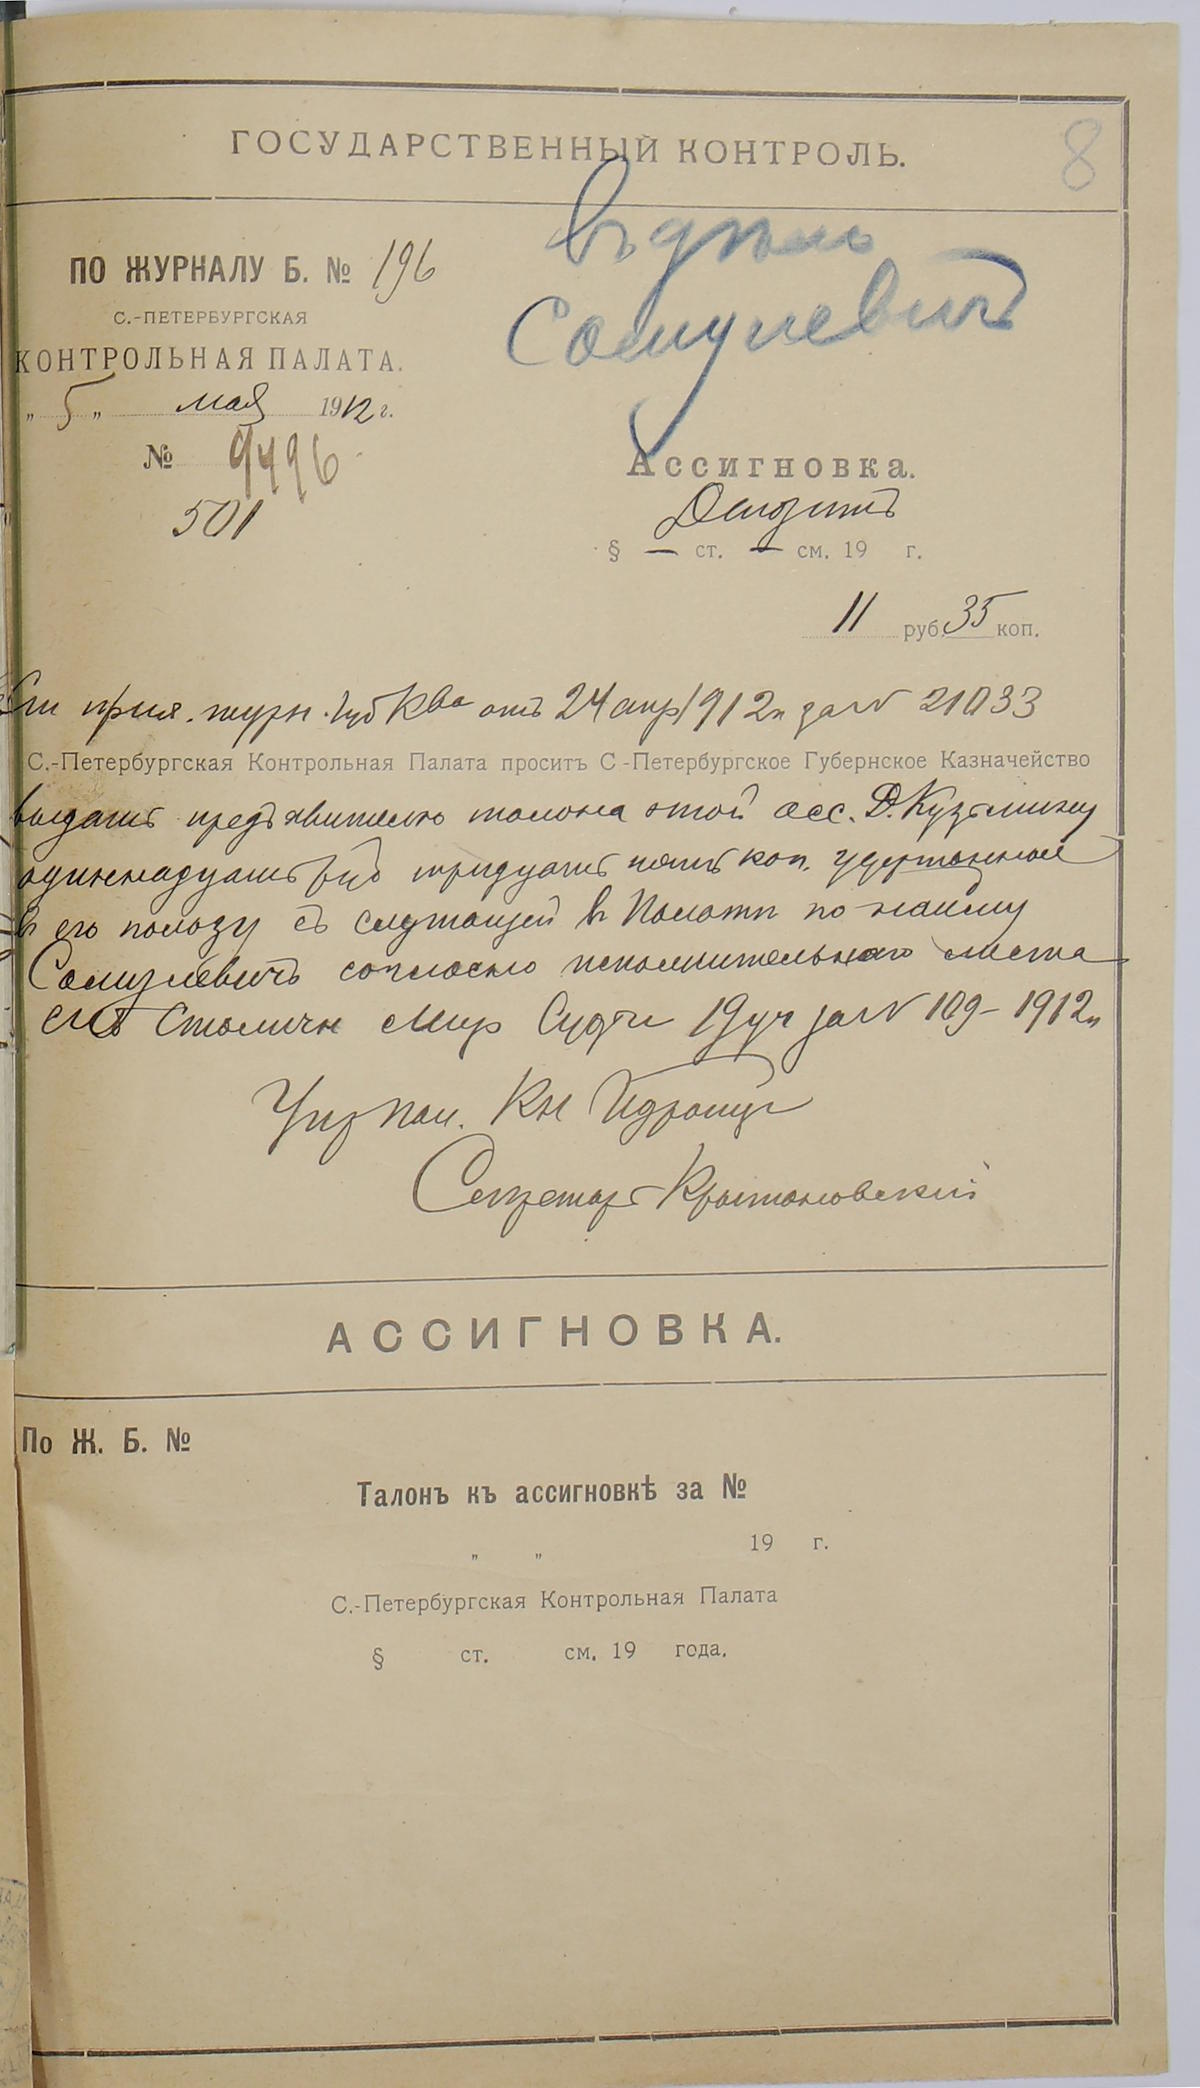 8
ГОСУДАРСТВЕННЫЙ КОНТРОЛЬ.
Въ дѣло
Самулевичъ
ПО ЖУРНАЛУ Б. № 196
С.-ПЕТЕРБУРГСКАЯ
КОНТРОЛЬНАЯ ПАЛАТА.
„ 5 „ мая 1912 г.
№ 9496
501
Ассигновка.
Депозитъ
§ — ст. — см. 19 г.
11 руб. 35 коп.
журн. Губ Ква отъ 24 апр 1912 г за № 21033
С.-Петербургская Контрольная Палата проситъ С-Петербургское Губернское Казначейство
выдать предъявителю талона этой асс. Д. Кузьмину
одиннадцать руб тридцать пять коп. удержанные
въ его пользу съ служащей в Палатѣ по найму
Самулевичъ согласно исполнительнаго листа
СПБ Столичн Мир Судьи 19 уч за № 109-1912 г
Упр Пал. Кн
Секретарь
АССИГНОВКА.
По Ж. Б. №
Талонъ къ ассигновкѣ за №
„ „ 19 г.
С.-Петербургская Контрольная Палата
§ ст. см. 19 года.